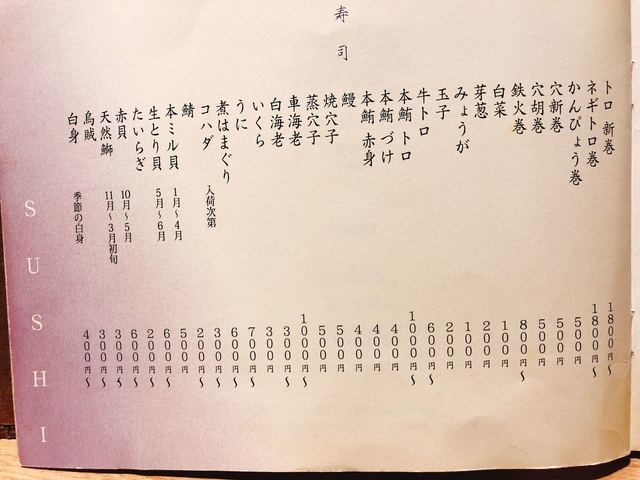 寿司
トロ 新巻 1800円〜
ネギトロ巻 1800円〜
かんぴょう巻 500円
穴新巻 500円
穴胡巻 500円
鉄火巻 800円〜
白菜 100円
芽葱 200円
みょうが 100円
玉子 200円
牛トロ 600円〜
本鮪 トロ 1000円〜
本鮪 づけ 400円
本鮪 赤身 400円
鰻 400円
焼穴子 500円
蒸穴子 500円
車海老 1000円〜
白海老 300円〜
いくら 300円
うに 700円〜
煮はまぐり 600円〜
コハダ 入荷次第 300円〜
鯖 200円〜
本ミル貝 1月〜4月 500円
生とり貝 5月〜6月 600円〜
たいらぎ 200円〜
赤貝 10月〜5月 600円〜
天然鰤 11月〜3月初旬 300円〜
烏賊 300円〜
白身 季節の白身 400円〜
SUSHI